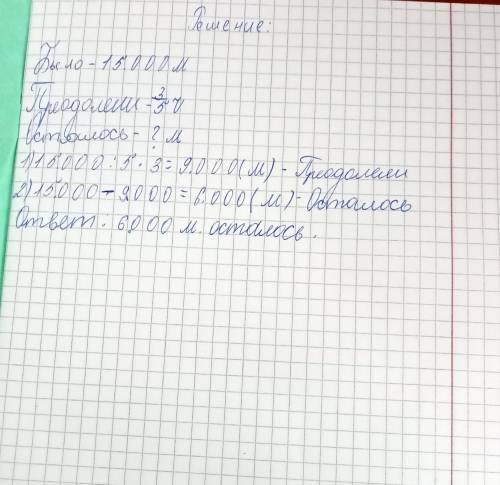 Решение:
Было - 15.000 м
Преодолели - 3/5 ч
Осталось - ? м
1) 15.000 : 5 · 3 = 9.000 (м) - Преодолели
2) 15.000 - 9.000 = 6.000 (м) - Осталось
Ответ: 6.000 м. осталось.